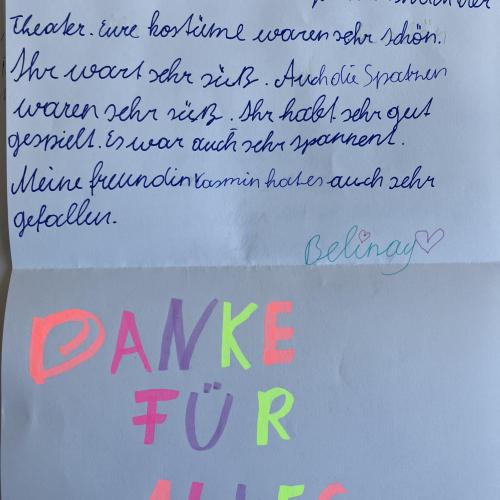 Theater. Eure kostüme waren sehr schön.
Ihr wart sehr süß. Auch die Spatzen
waren sehr süß. Ihr habt sehr gut
gespielt. Es war auch sehr spannent.
Meine freundin Yasmin hat es auch sehr
gefallen.
Belinay
DANKE
FÜR
ALLES